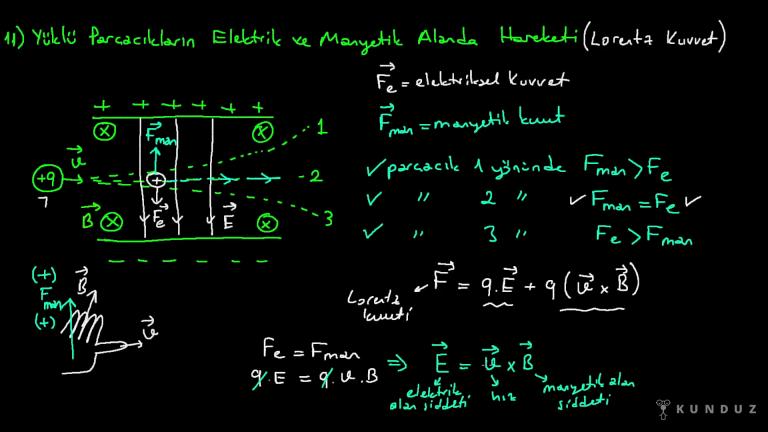 11) Yüklü Parçacıkların Elektrik ve Manyetik Alanda Hareketi (Lorentz Kuvvet)
F⃗e = elektriksel kuvvet
F⃗man = manyetik kuvvet
+ + + + + +
⊗ F⃗man ⊗ 1
+q v⃗ + 2
7
B⃗ ⊗ F⃗e E⃗ ⊗ 3
- - - - - -
✓ parçacık 1 yönünde Fman > Fe
✓ " 2 " ✓ Fman = Fe ✓
✓ " 3 " Fe > Fman
(+) B⃗
Fman
(+) v⃗
Lorentz kuvveti
F⃗ = q.E⃗ + q (v⃗ x B⃗)
Fe = Fman
q.E = q.v.B ⇒ E⃗ = v⃗ x B⃗
elektrik alan şiddeti hız manyetik alan şiddeti
KUNDUZ